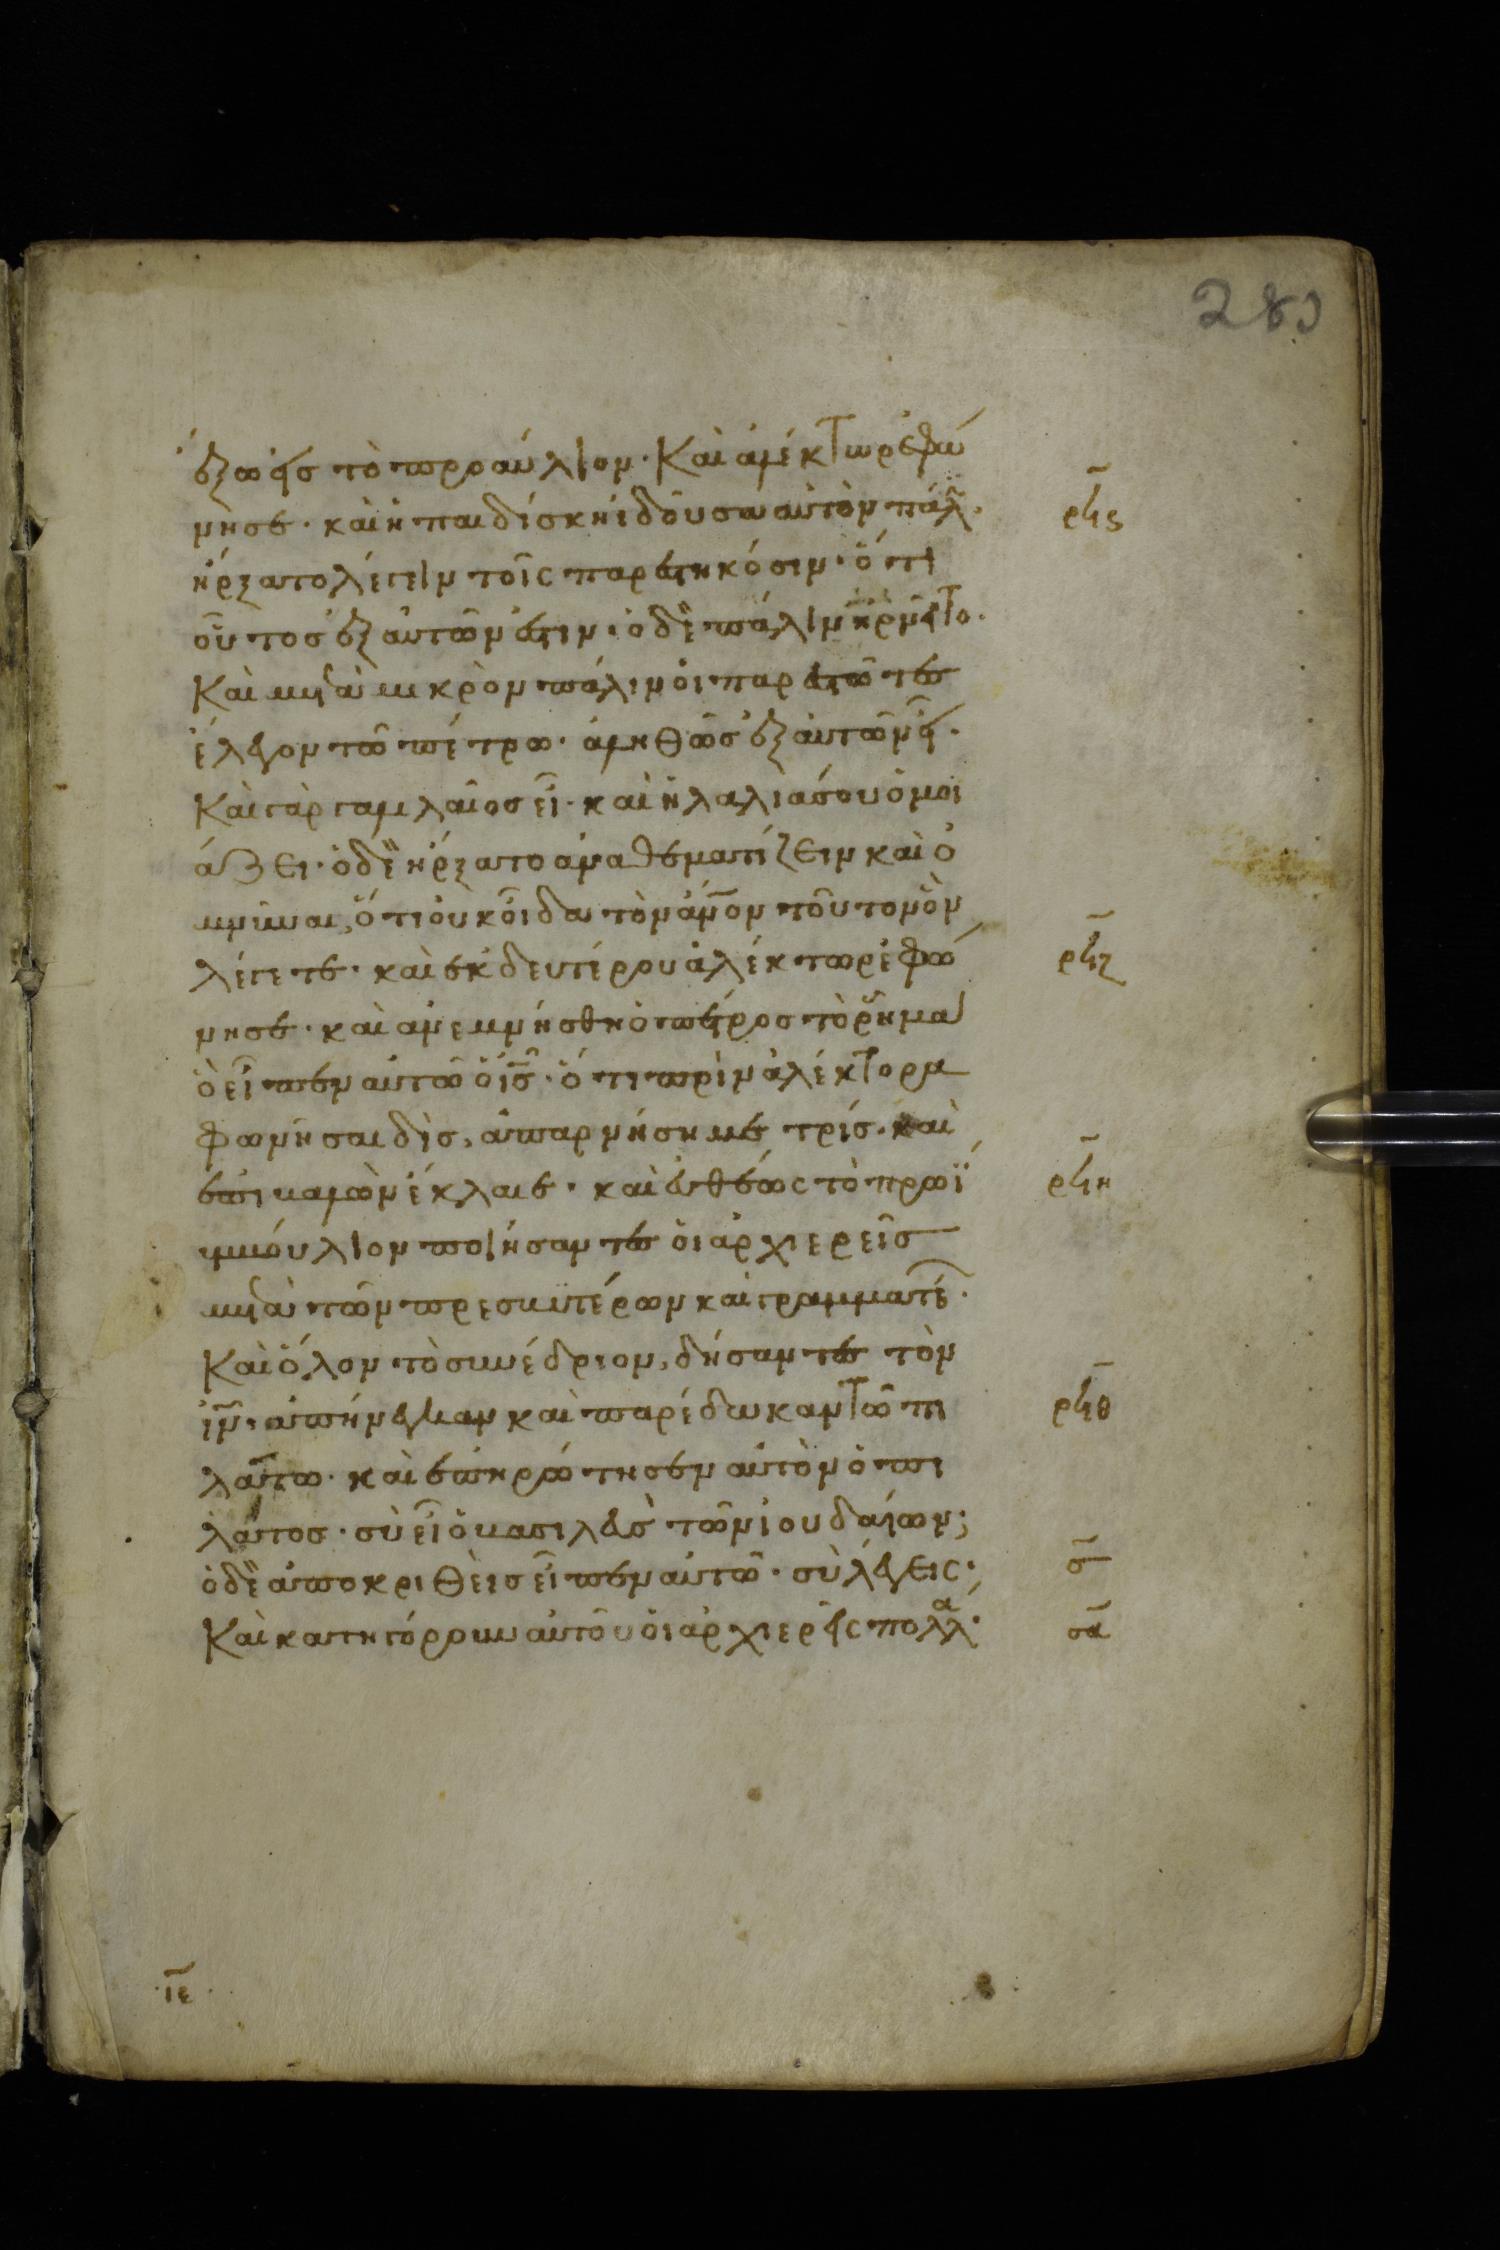 283
ἔξω εἰς τὸ προαύλιον· Καὶ ἀλέκτωρ ἐφώ
νησε· καὶ ἡ παιδίσκη ἰδοῦσα αὐτὸν πάλ̃· ρϟϛ
ἤρξατο λέγειν τοῖς παρεστηκόσιν· ὅτι
οὗτος ἐξ αὐτῶν ἐστιν· ὁ δὲ πάλιν ἠρνεῖτο·
Καὶ μετὰ μικρὸν πάλιν οἱ παρεστῶτες
ἔλεγον τῶ πέτρω· ἀληθῶς ἐξ αὐτῶν εἶ·
Καὶ γὰρ γαλιλαῖος εἶ· καὶ ἡ λαλιά σου ὁμοι
άζει· ὁ δὲ ἤρξατο ἀναθεματίζειν καὶ ὀ
μνύναι, ὅτι οὐκ οἶδα τὸν ἄν̅ον τοῦτον ὃν
λέγετε· καὶ ἐκ δευτέρου ἀλέκτωρ ἐφώ ρϟζ
νησε· καὶ ἀνεμνήσθη ὁ πέτρος τὸ ῥῆμα
ὃ εἶπεν αὐτῶ ὁ ι̅ς̅· ὅτι πρὶν ἀλέκτορα
φωνῆσαι δὶς, ἀπαρνήση με τρίς· καὶ
ἐπιβαλὼν ἔκλαιε· καὶ εὐθέως τὸ πρωῒ ρϟη
συμβούλιον ποιήσαντες οἱ ἀρχιερεῖς
μετὰ τῶν πρεσβυτέρων καὶ γραμματέ·
Καὶ ὅλον τὸ συνέδριον, δήσαντες τὸν
ι̅ν̅· ἀπήνεγκαν καὶ παρέδωκαν τῶ πι ρϟθ
λάτω· καὶ ἐπηρώτησεν αὐτὸν ὁ πι
λάτος· σὺ εἶ ὁ βασιλεὺς τῶν ἰουδαίων;
ὁ δὲ ἀποκριθεὶς εἶπεν αὐτῶ· σὺ λέγεις· σ̅
Καὶ κατηγόρουν αὐτοῦ οἱ ἀρχιερεῖς πολλά· σα̅
ιε